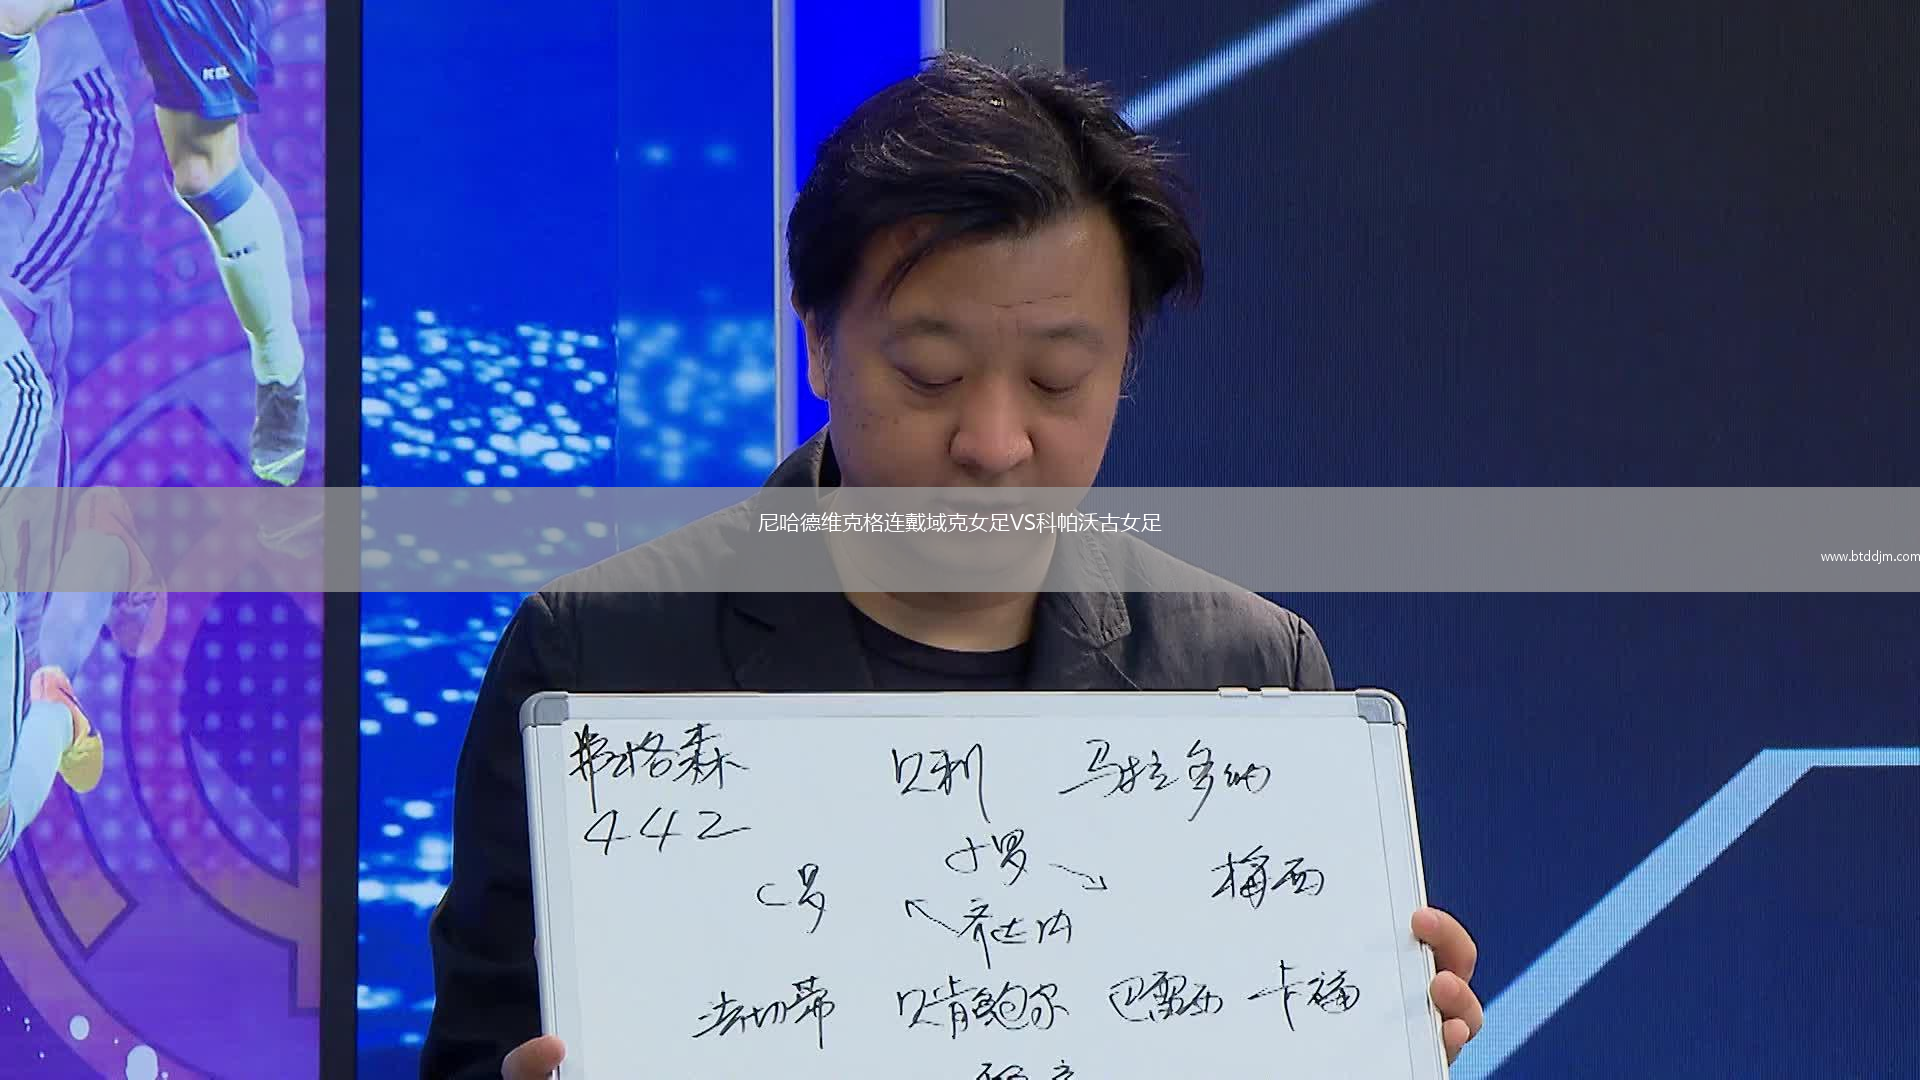 尼哈德维克格连戴域克女足VS科帕沃古女足
www.btddjm.com
弗格森 贝利 马拉多纳
442
小罗
C罗 梅西
齐达内
法切蒂 贝肯鲍尔 巴雷西 卡福